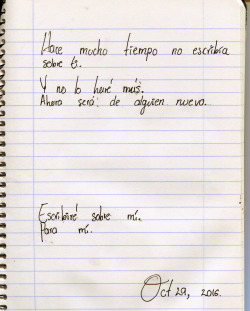 Hace mucho tiempo no escribía
sobre ti.
Y no lo haré más.
Ahora será: de alguien nuevo.
Escribiré sobre mí.
Para mí.
Oct 29, 2016.